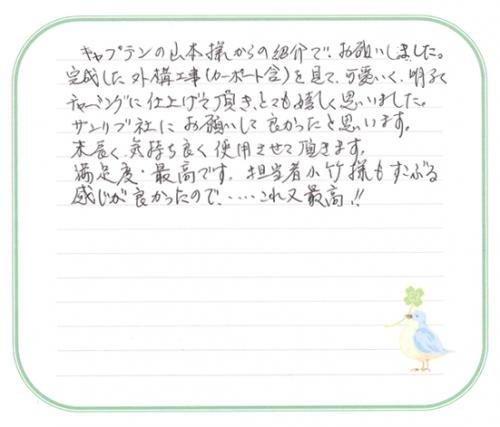 キャプテンの山本様からの紹介で、お願いしました。
完成した外構工事(カーポート含)を見て、可愛いく、明るく
チャーミングに仕上げて頂き、とても嬉しく思いました。
サンリブ社にお願いして良かったと思います。
末長く、気持ち良く使用させて頂きます。
満足度・最高です。担当者小竹様もすこぶる
感じが良かったので、‥‥これ又最高!!